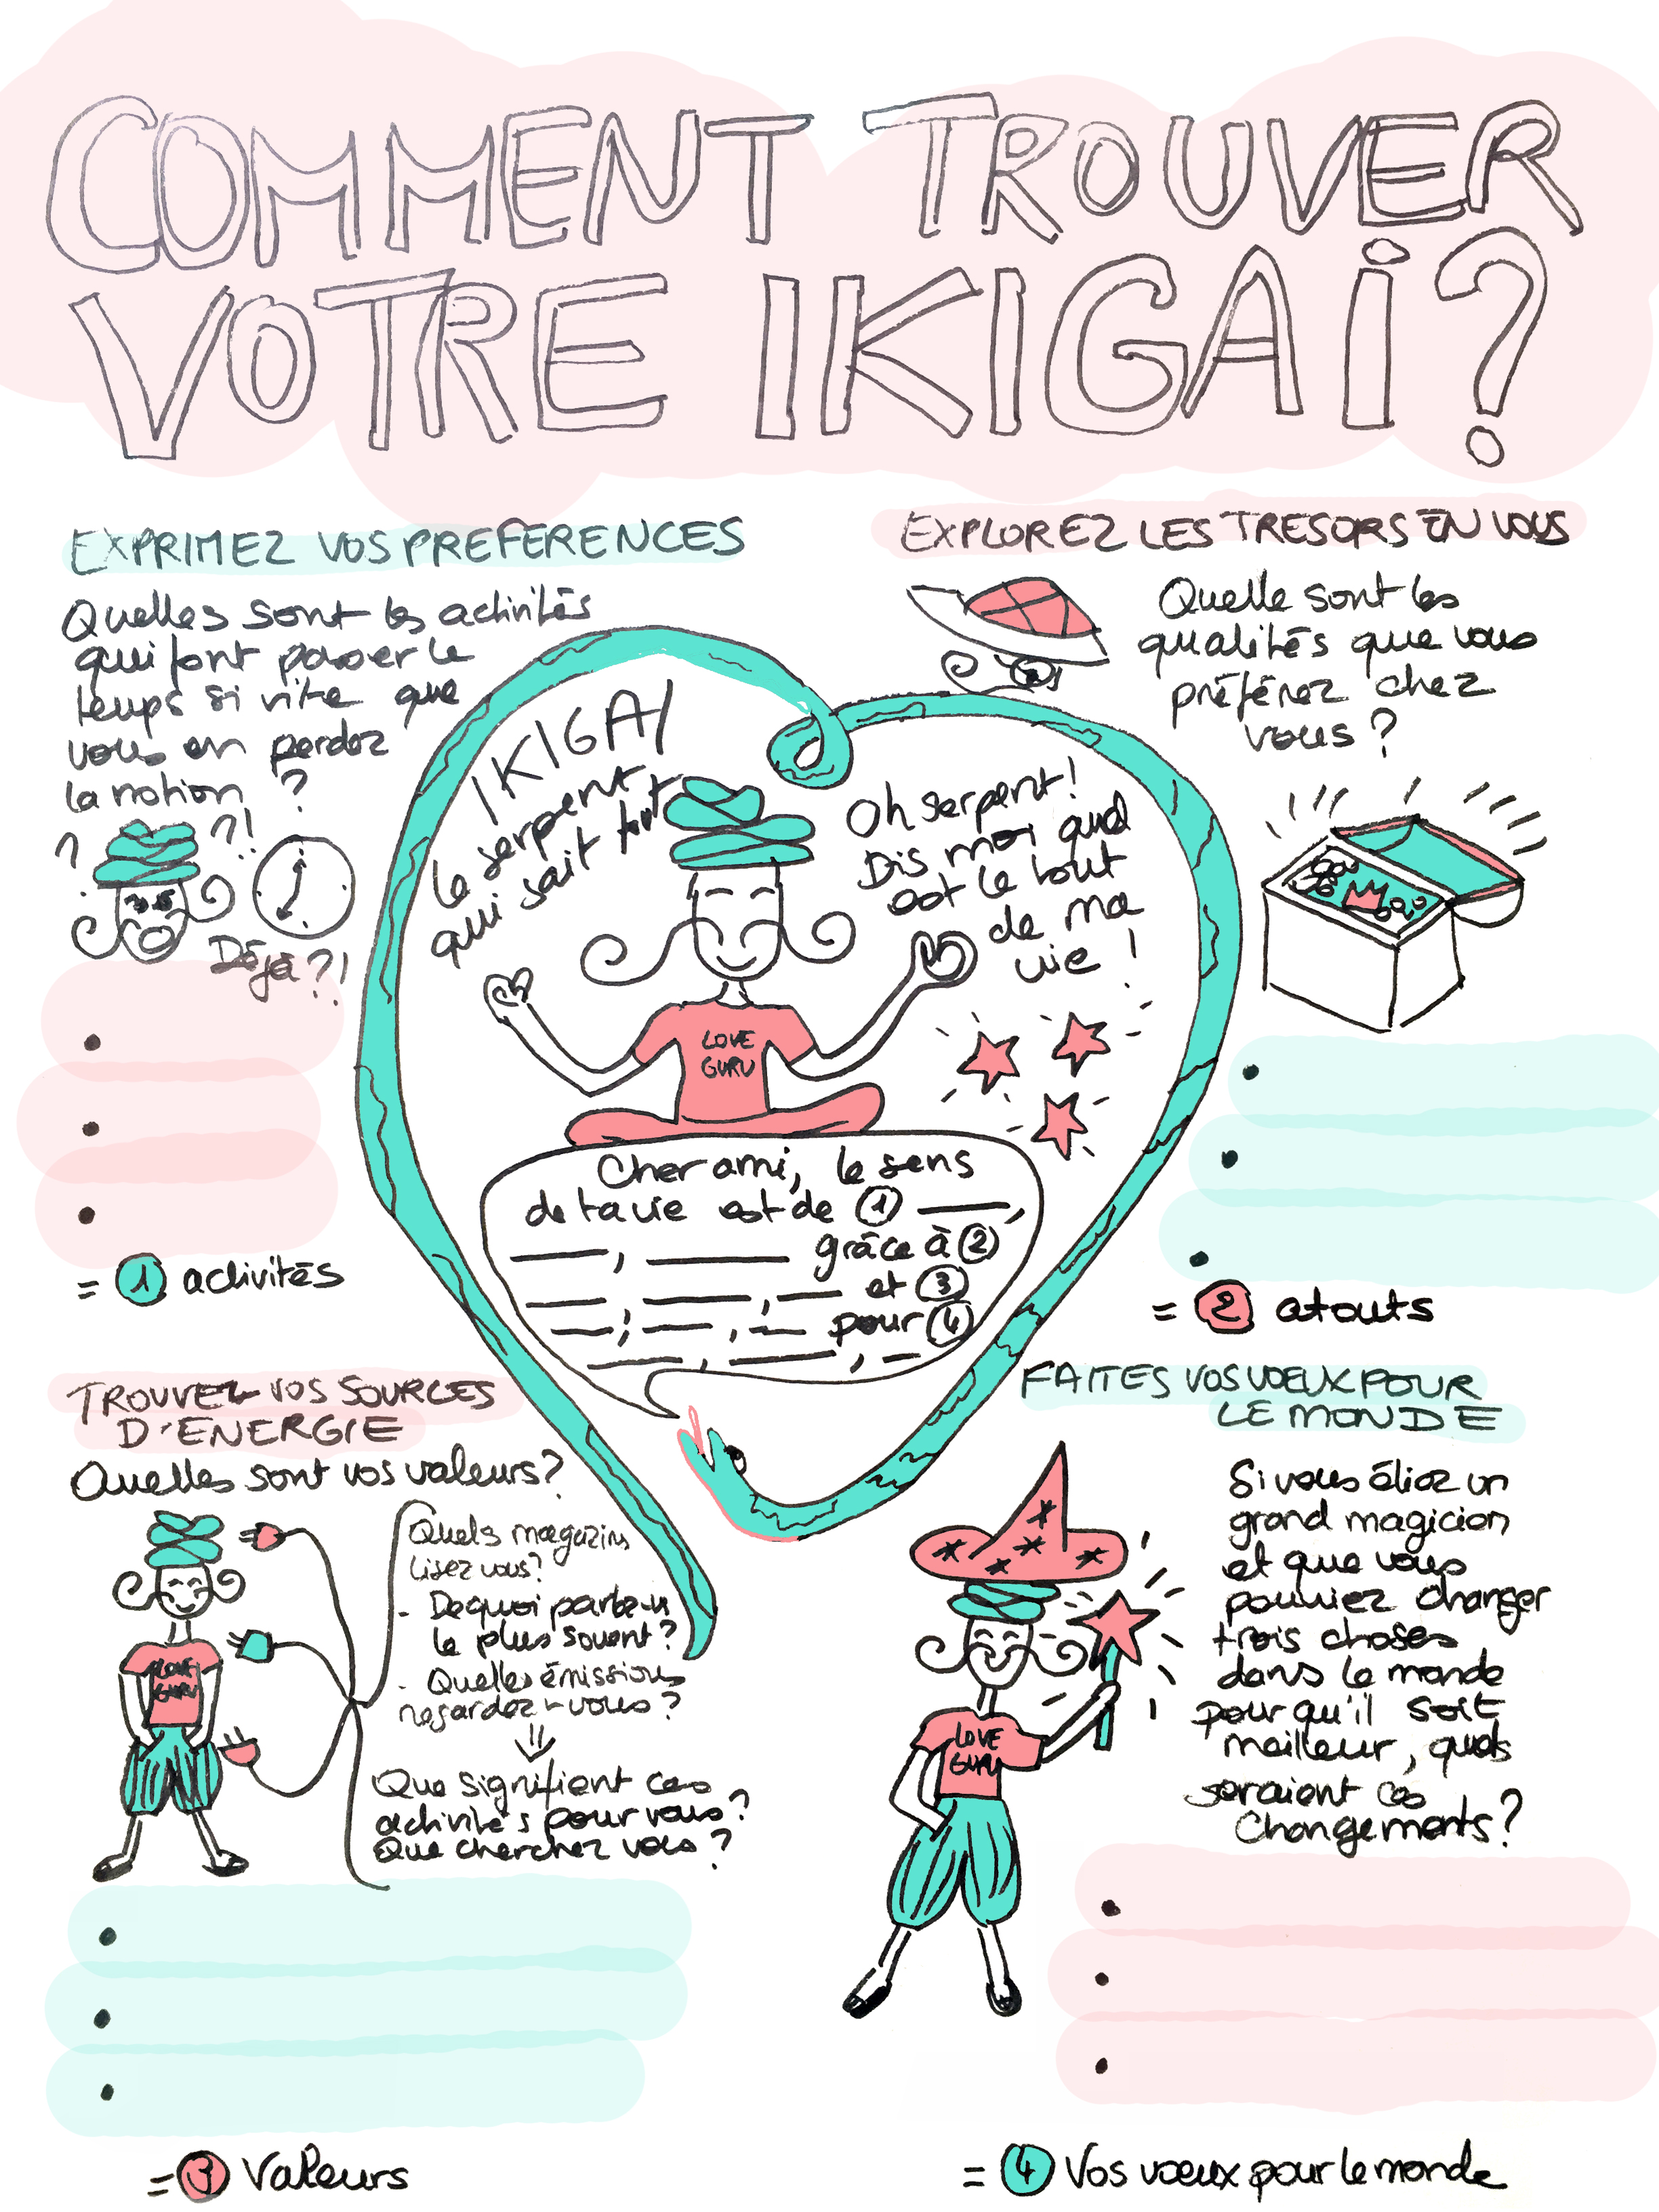 COMMENT TROUVER
VOTRE IKIGAi?
EXPRIMEZ VOS PREFERENCES
Quelles sont les activités
qui font passer le
temps si vite que
vous en perdez
la notion ?
? ?!
Déjà ?!
= 1 activités
EXPLOREZ LES TRESORS EN VOUS
Quelle sont les
qualités que vous
préférez chez
vous ?
= 2 atouts
IKIGAI
le serpent
qui sait tout
Oh serpent !
Dis moi quel
est le bout
de ma
vie !
LOVE
GURU
Cher ami, le sens
de ta vie est de 1 ___,
___, ___ grâce à 2
___, ___, ___ et 3
___; ___, ___ pour 4
___, ___, ___
TROUVEZ VOS SOURCES
D'ENERGIE
Quelles sont vos valeurs?
LOVE
GURU
Quels magazins
lisez vous?
- De quoi parlez-vs
le plus souvent?
- Quelles émissions
regardez-vous ?
Que signifient ces
activités pour vous ?
Que cherchez vous ?
= 3 Valeurs
FAITES VOS VOEUX POUR
LE MONDE
Si vous étiez un
grand magicien
et que vous
pouviez changer
trois choses
dans le monde
pour qu'il soit
meilleur, quels
seraient ces
changements?
LOVE
GURU
= 4 Vos voeux pour le monde